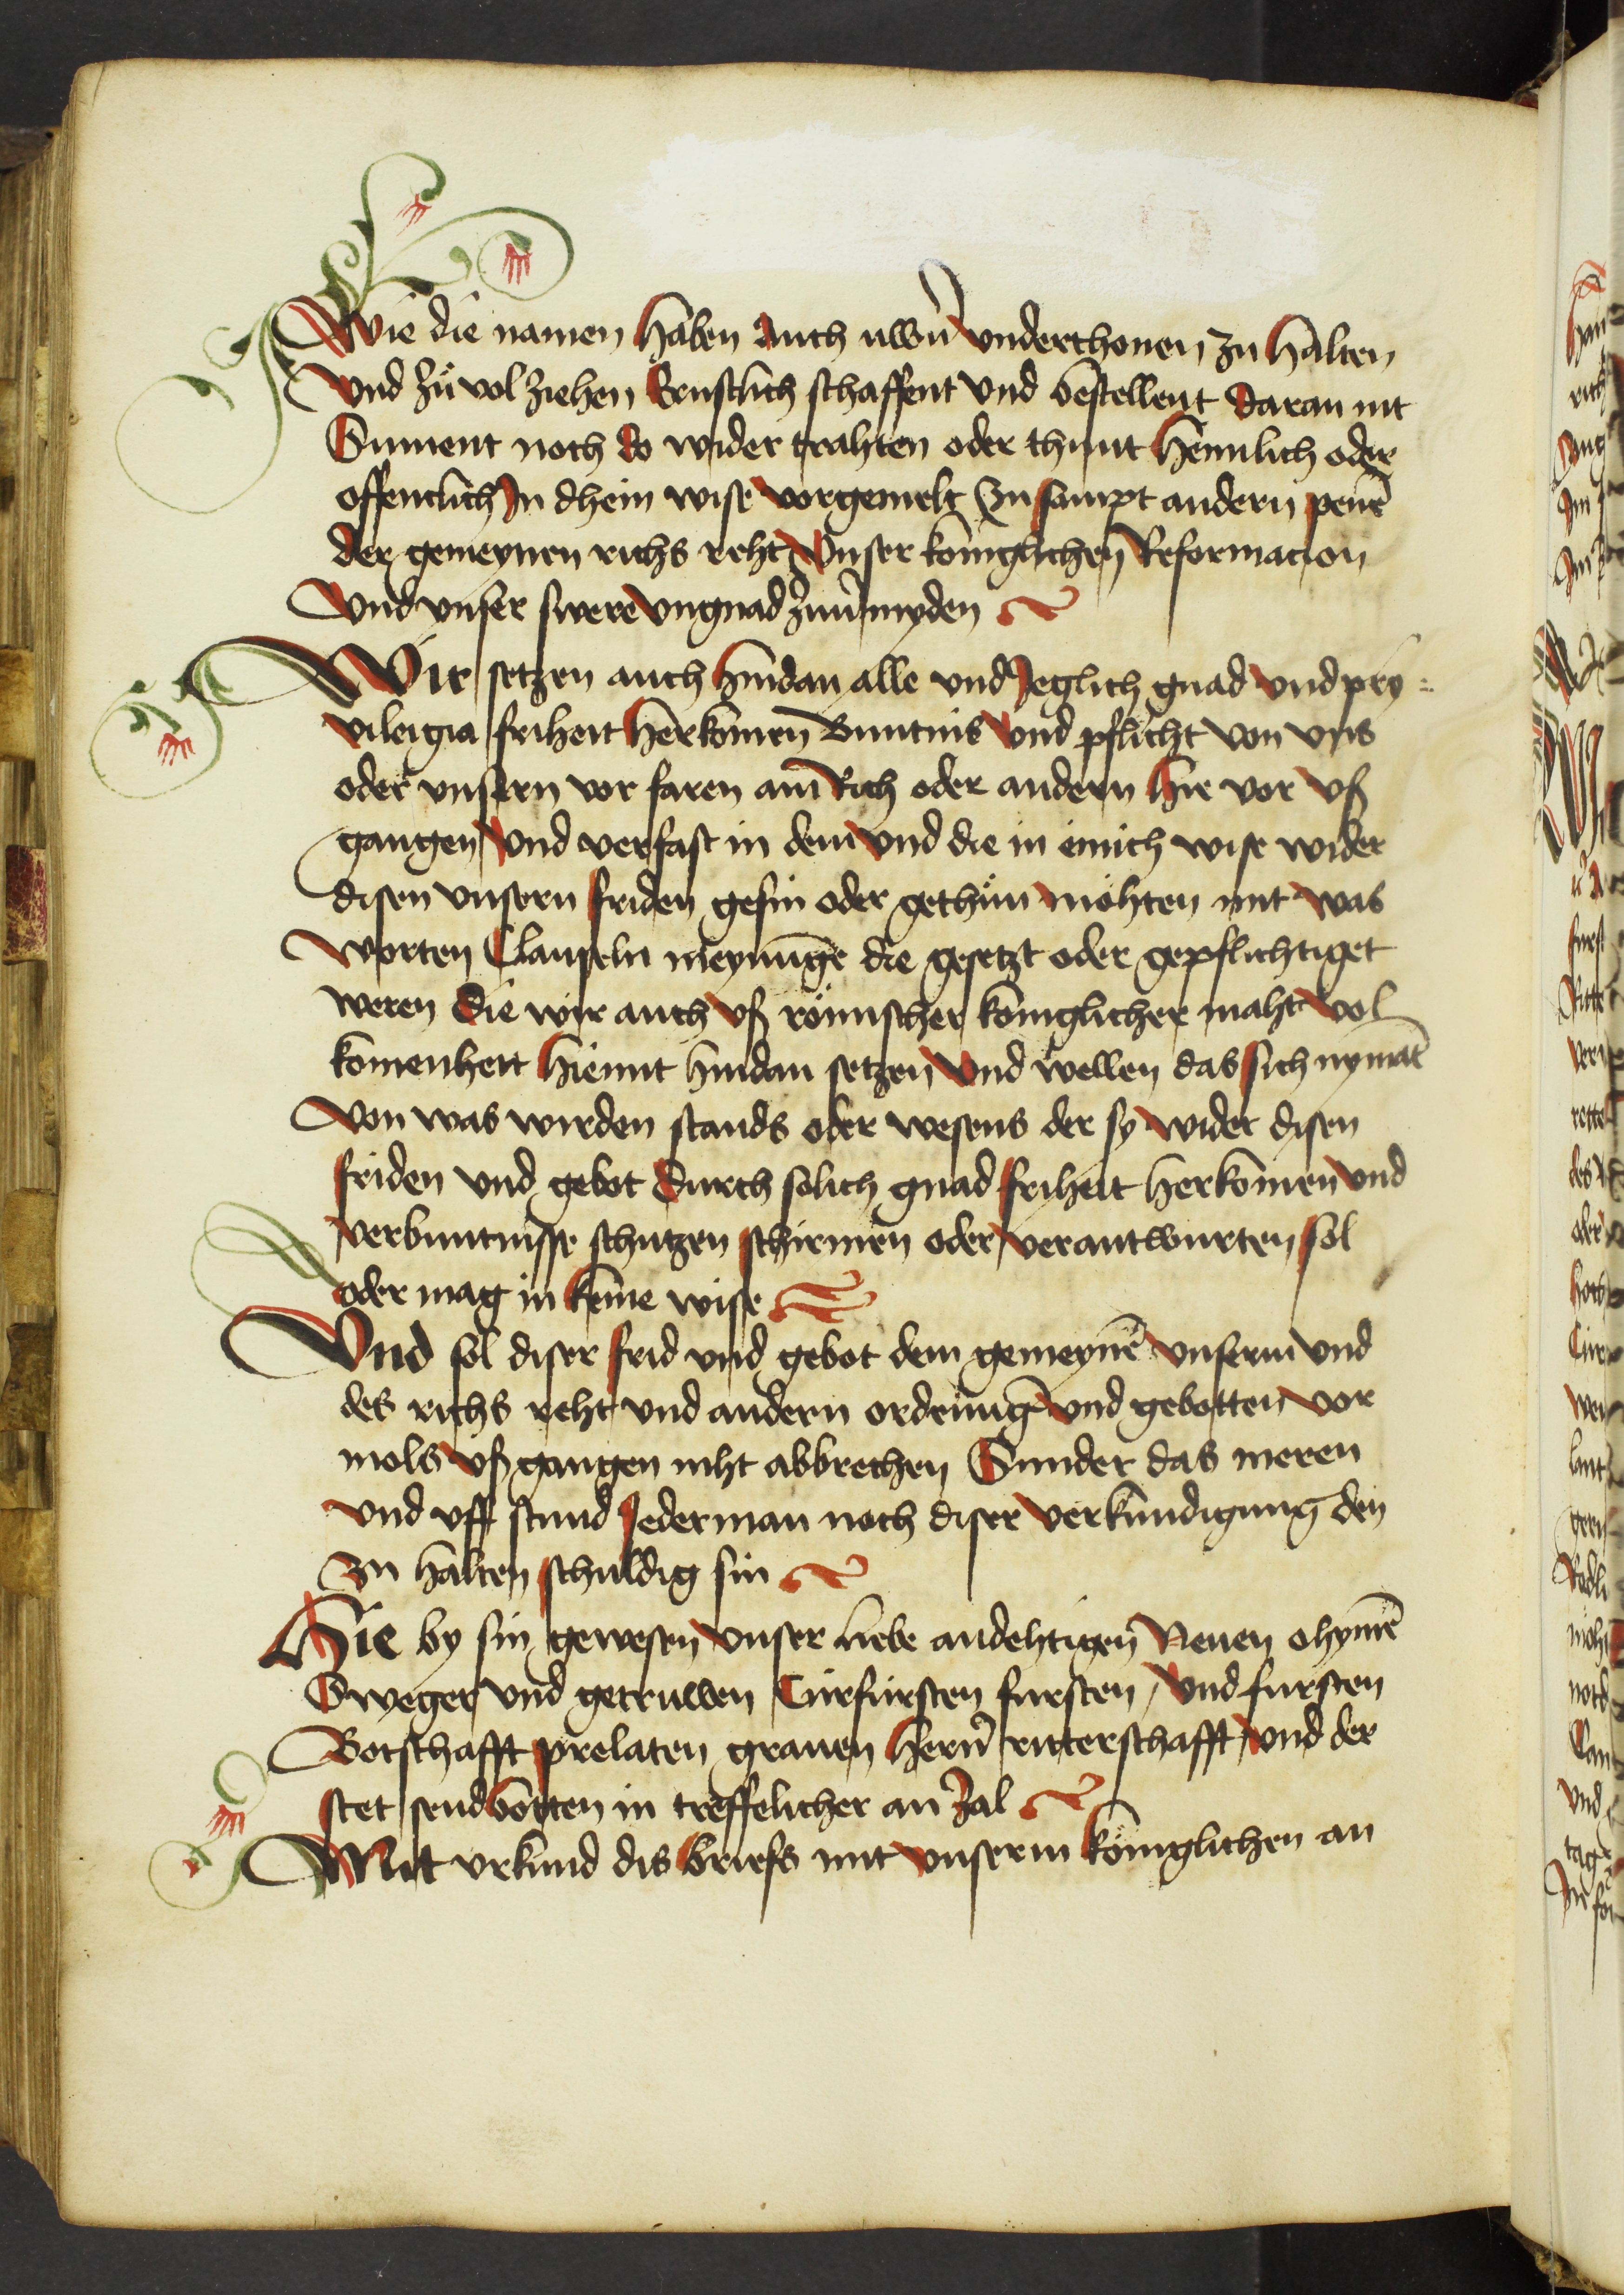 Wie die namen haben Auch uwern underthonen zu halten
Und zů vol ziehen Ernstlich schaffent und bestellent Daran nit
Sument noch do wider trahten oder thunt heimlich oder
offentlich In dhein wise vorgemelt Zu sampt andern penē
der gemeynen richs reht Unser königlichen Reformacion
Und unser swere ungnad zuuermyden
Wir setzen auch hindan alle und Jeglich gnad und pry=
vileigia friheit herkomen Buntnis und pflicht von uns
oder unsern vor faren am Rich oder andern hie vor uß
gangen und verfast in dem und die in einich wise wider
disen unsern friden gesin oder gethůn möhten mit was
worten Clauseln meynūge die gesetzt oder gepflichtiget
weren Die wir auch uß römischer königlicher maht vol
komenheit hiemit hindan setzen und wellen das sich nymāt
von was wirden stands oder wesens der sy wider disen
friden und gebot Durch solich gnad friheit herkomen und
verbuntnisse schutzen schirmen oder verantwurten sol
oder mag in keine wise
Und sol diser frid und gebot dem gemeynē unserm und
des richs reht und andern ordenūgē und gebotten vor
mols uß gangen niht abbrechen Sunder das meren
und uff stund Jederman noch diser verkundigung den
zu halten schuldig sin
Hie by sin gewesen unser liebe andehtigen Neuen ohymē
Sweger und getruwen Curfürsten fursten und fursten
Botschafft prelaten grauen herñ ritterschafft und der
stet sendbotten in treffelicher an zal
Mit urkund dis briefs mit unserm königlichen an